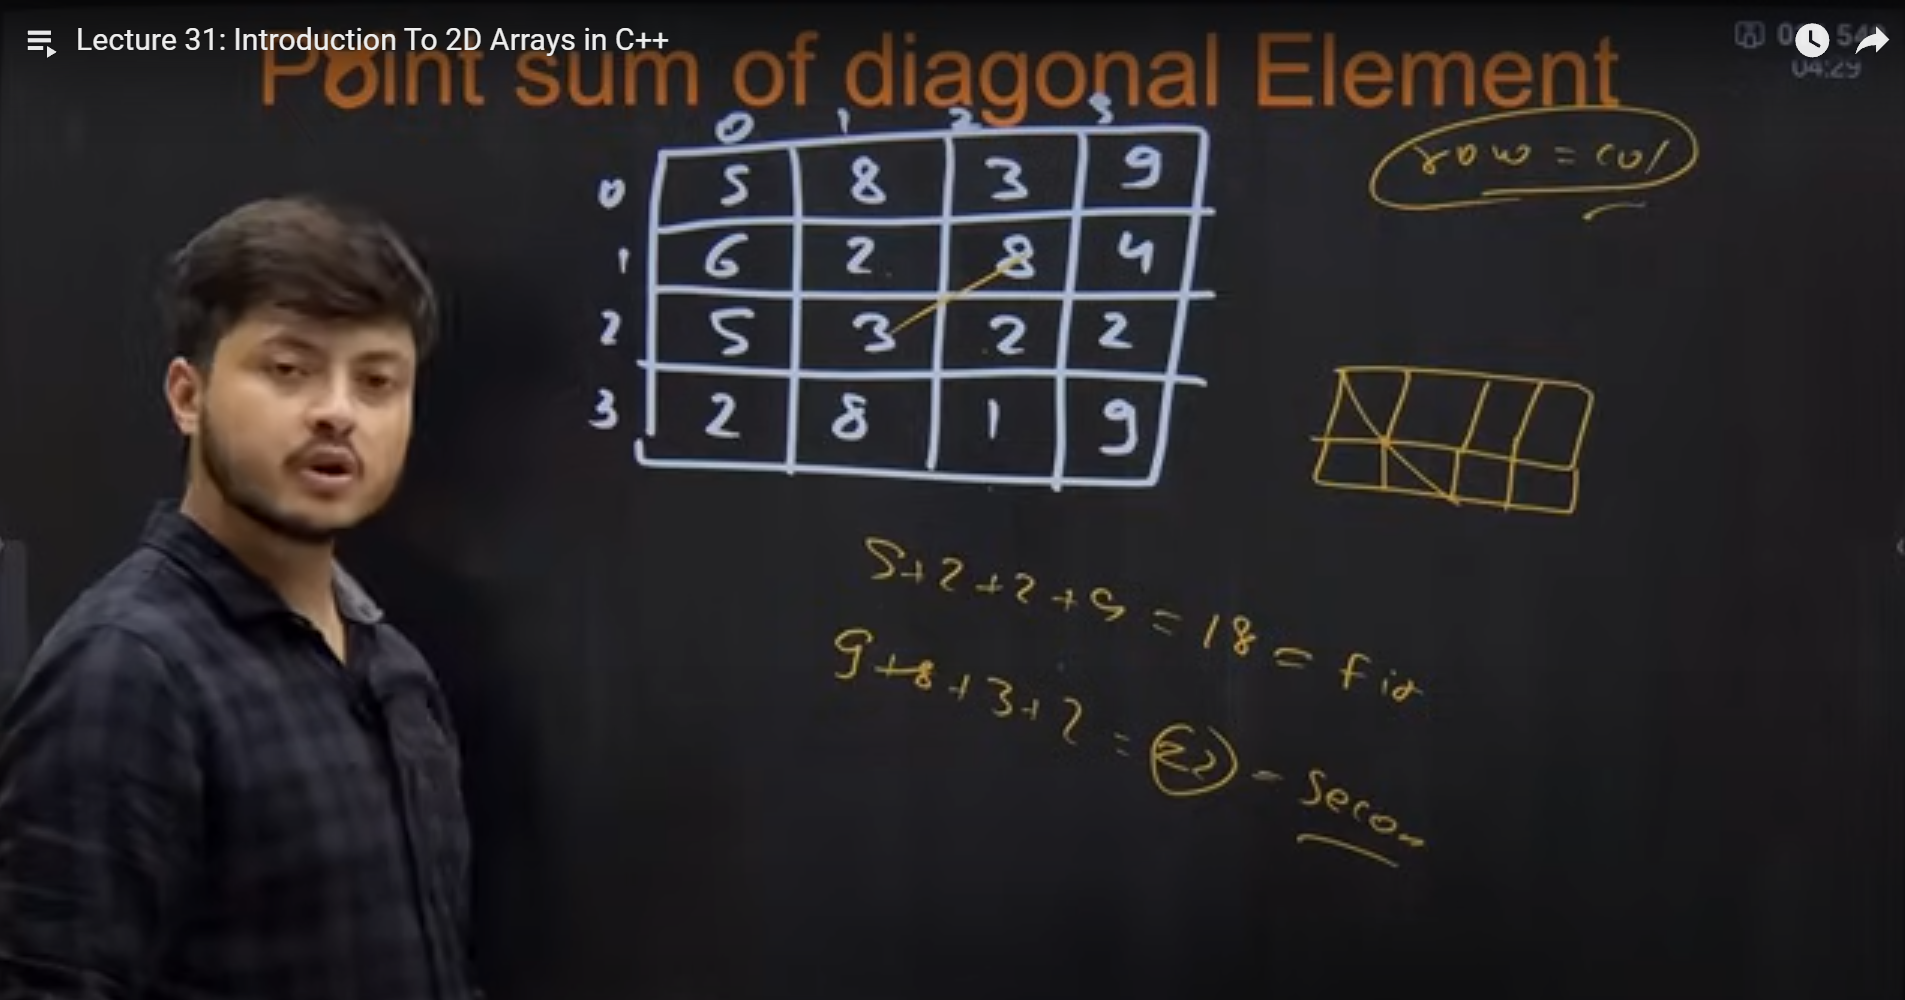 Lecture 31: Introduction To 2D Arrays in C++
Point sum of diagonal Element
04:29
row = col
0 1 2 3
0 5 8 3 9
1 6 2 8 4
2 5 3 2 2
3 2 8 1 9
5+2+2+9 = 18 = fir
9+8+3+2 = 22 - Secon